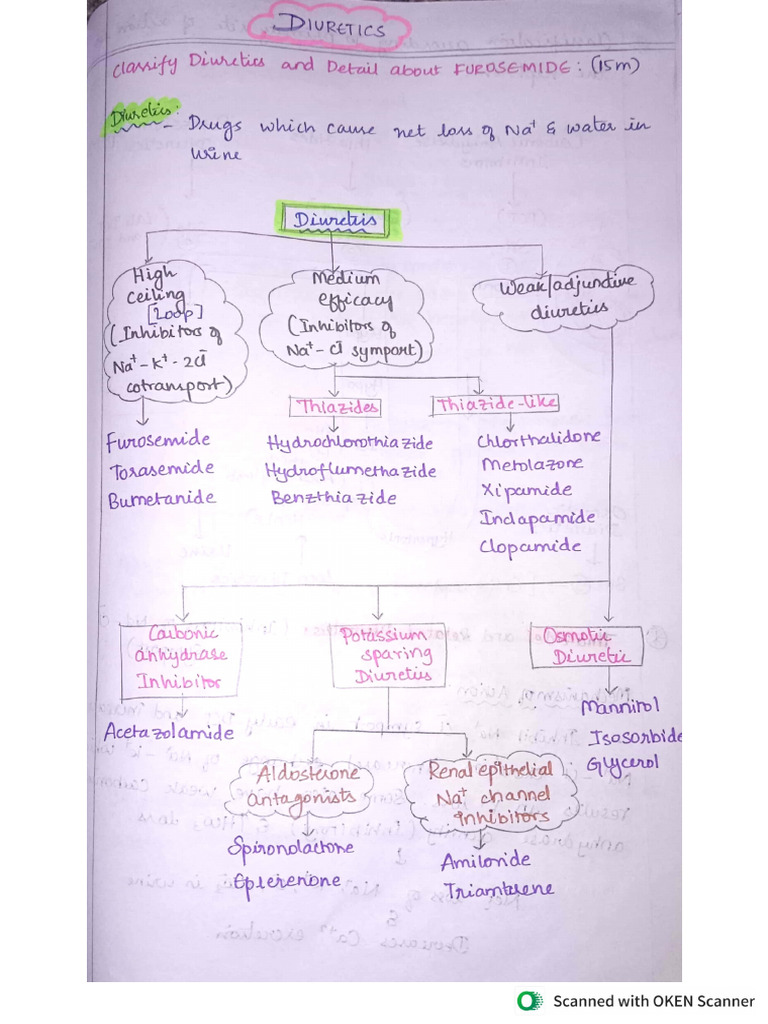 DIURETICS
Classify Diuretics and Detail about FUROSEMIDE: (15m)
Diuretics:
- Drugs which cause net loss of Na+ & water in
urine
Diuretics
High
ceiling
[Loop]
(Inhibitors of
Na+-K+-2Cl-
cotransport)
Medium
efficacy
(Inhibitors of
Na+-Cl- symport)
Weak/adjunctive
diuretics
Thiazides
Thiazide-like
Furosemide
Torasemide
Bumetanide
Hydrochlorothiazide
Hydroflumethazide
Benzthiazide
Chlorthalidone
Metolazone
Xipamide
Indapamide
Clopamide
Carbonic
anhydrase
Inhibitor
Potassium
sparing
Diuretics
Osmotic
Diuretic
Acetazolamide
Mannitol
Isosorbide
Glycerol
Aldosterone
antagonists
Renal epithelial
Na+ channel
inhibitors
Spironolactone
Eplerenone
Amiloride
Triamterene
Scanned with OKEN Scanner